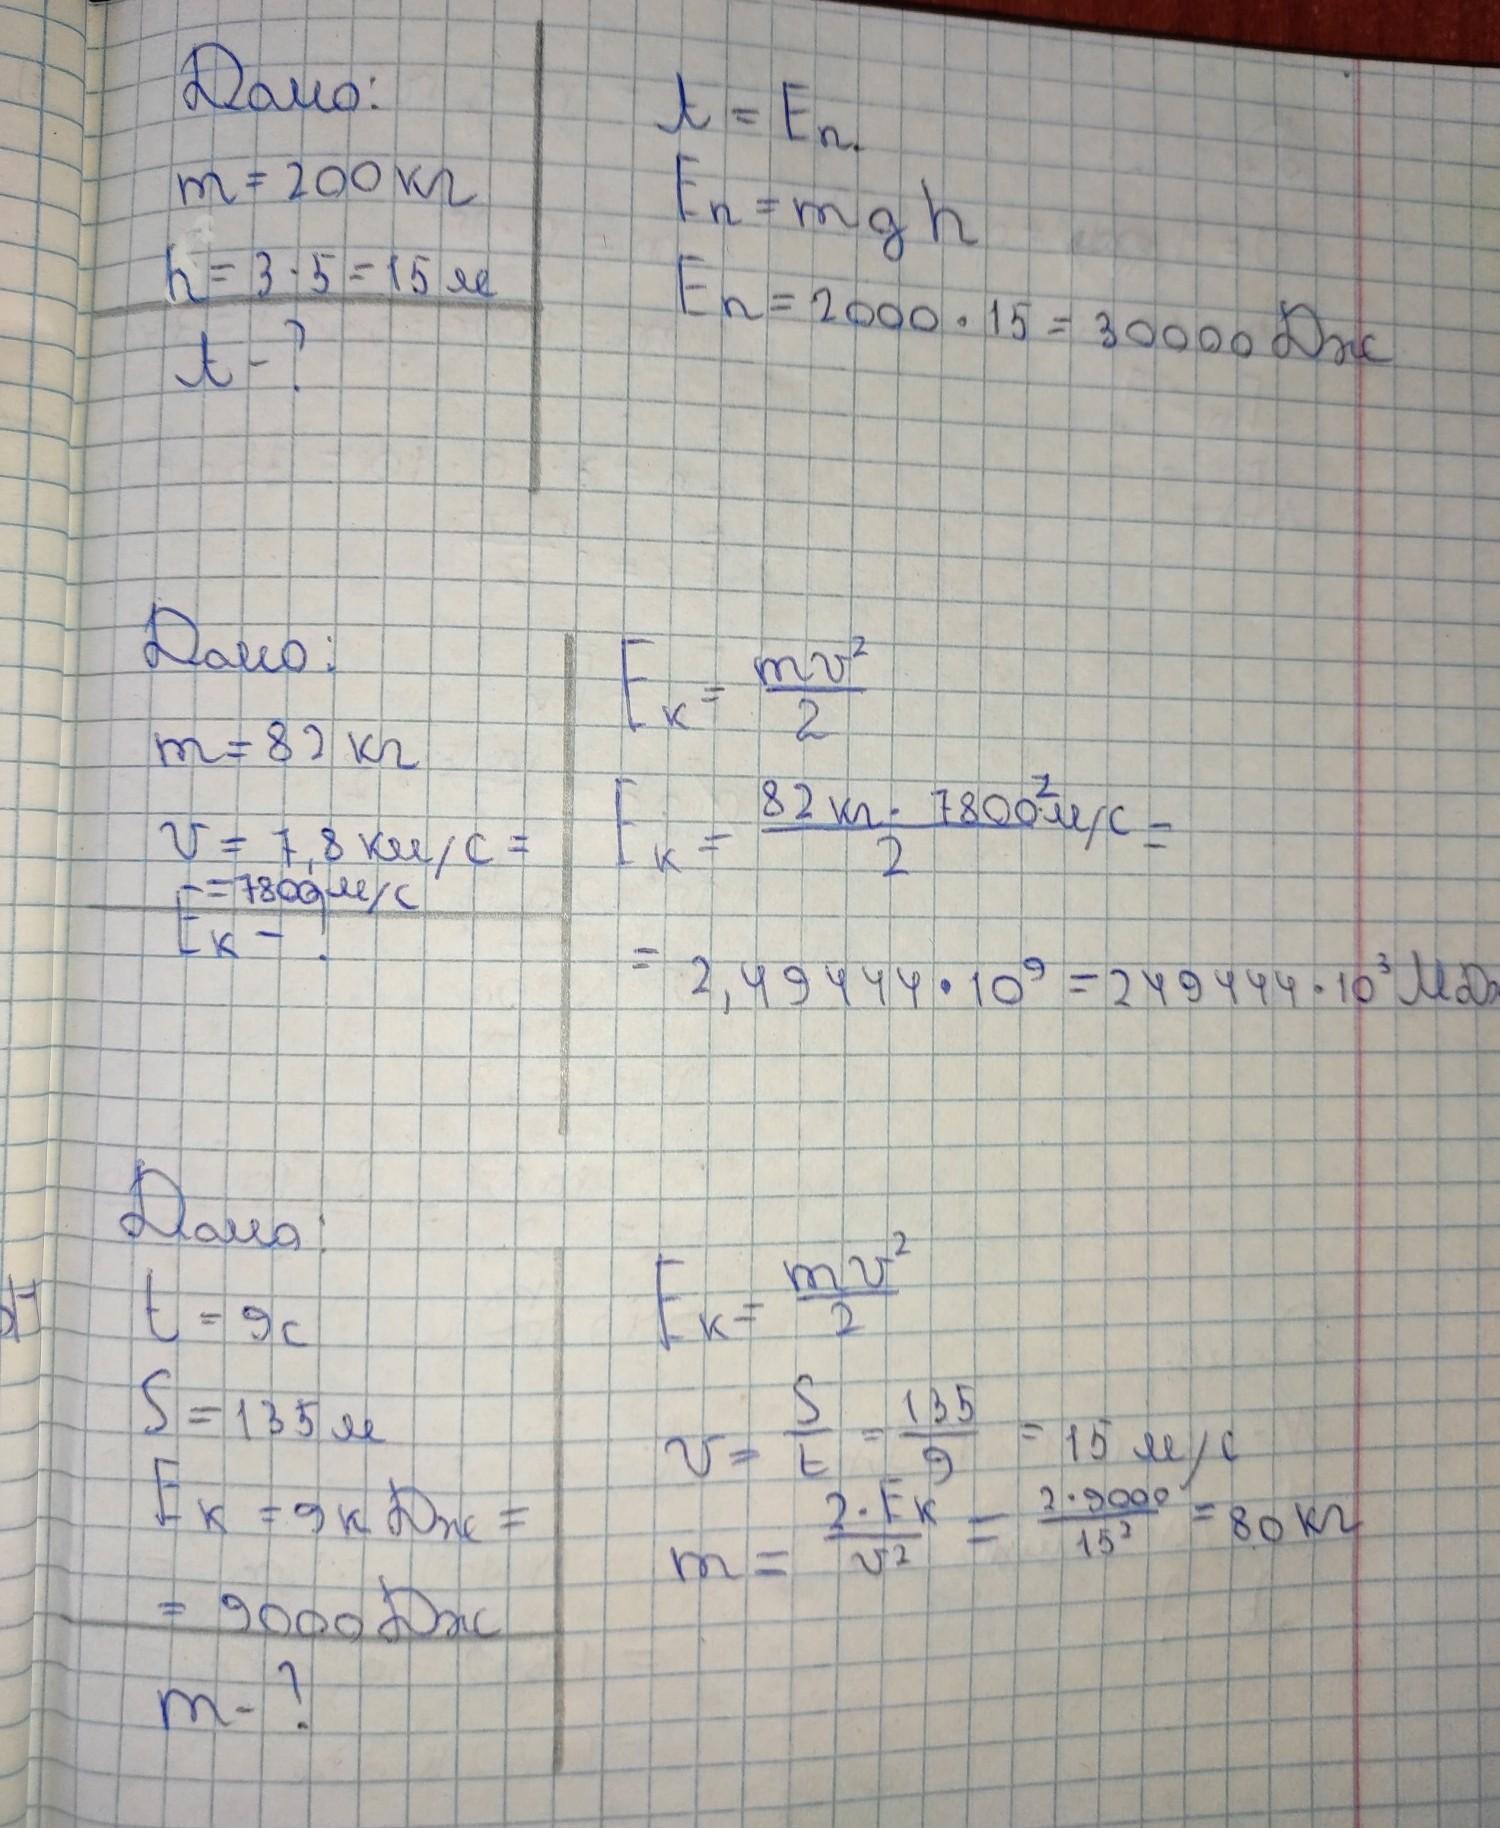 Дано:
m = 200 кг
h = 3 · 5 = 15 м
A - ?
A = Eп.
Eп = mgh
Eп = 2000 · 15 = 30000 Дж
Дано:
m = 82 кг
v = 7,8 км/с =
= 7800 м/с
Eк - ?
Eк = mv²/2
Eк = 82 кг · 7800² м/с / 2 =
= 2,49444 · 10⁹ = 249444 · 10³ МДж
Дано:
t = 9с
S = 135 м
Eк = 9 кДж =
= 9000 Дж
m - ?
Eк = mv²/2
v = S/t = 135/9 = 15 м/с
m = 2·Eк/v² = 2·9000/15² = 80 кг